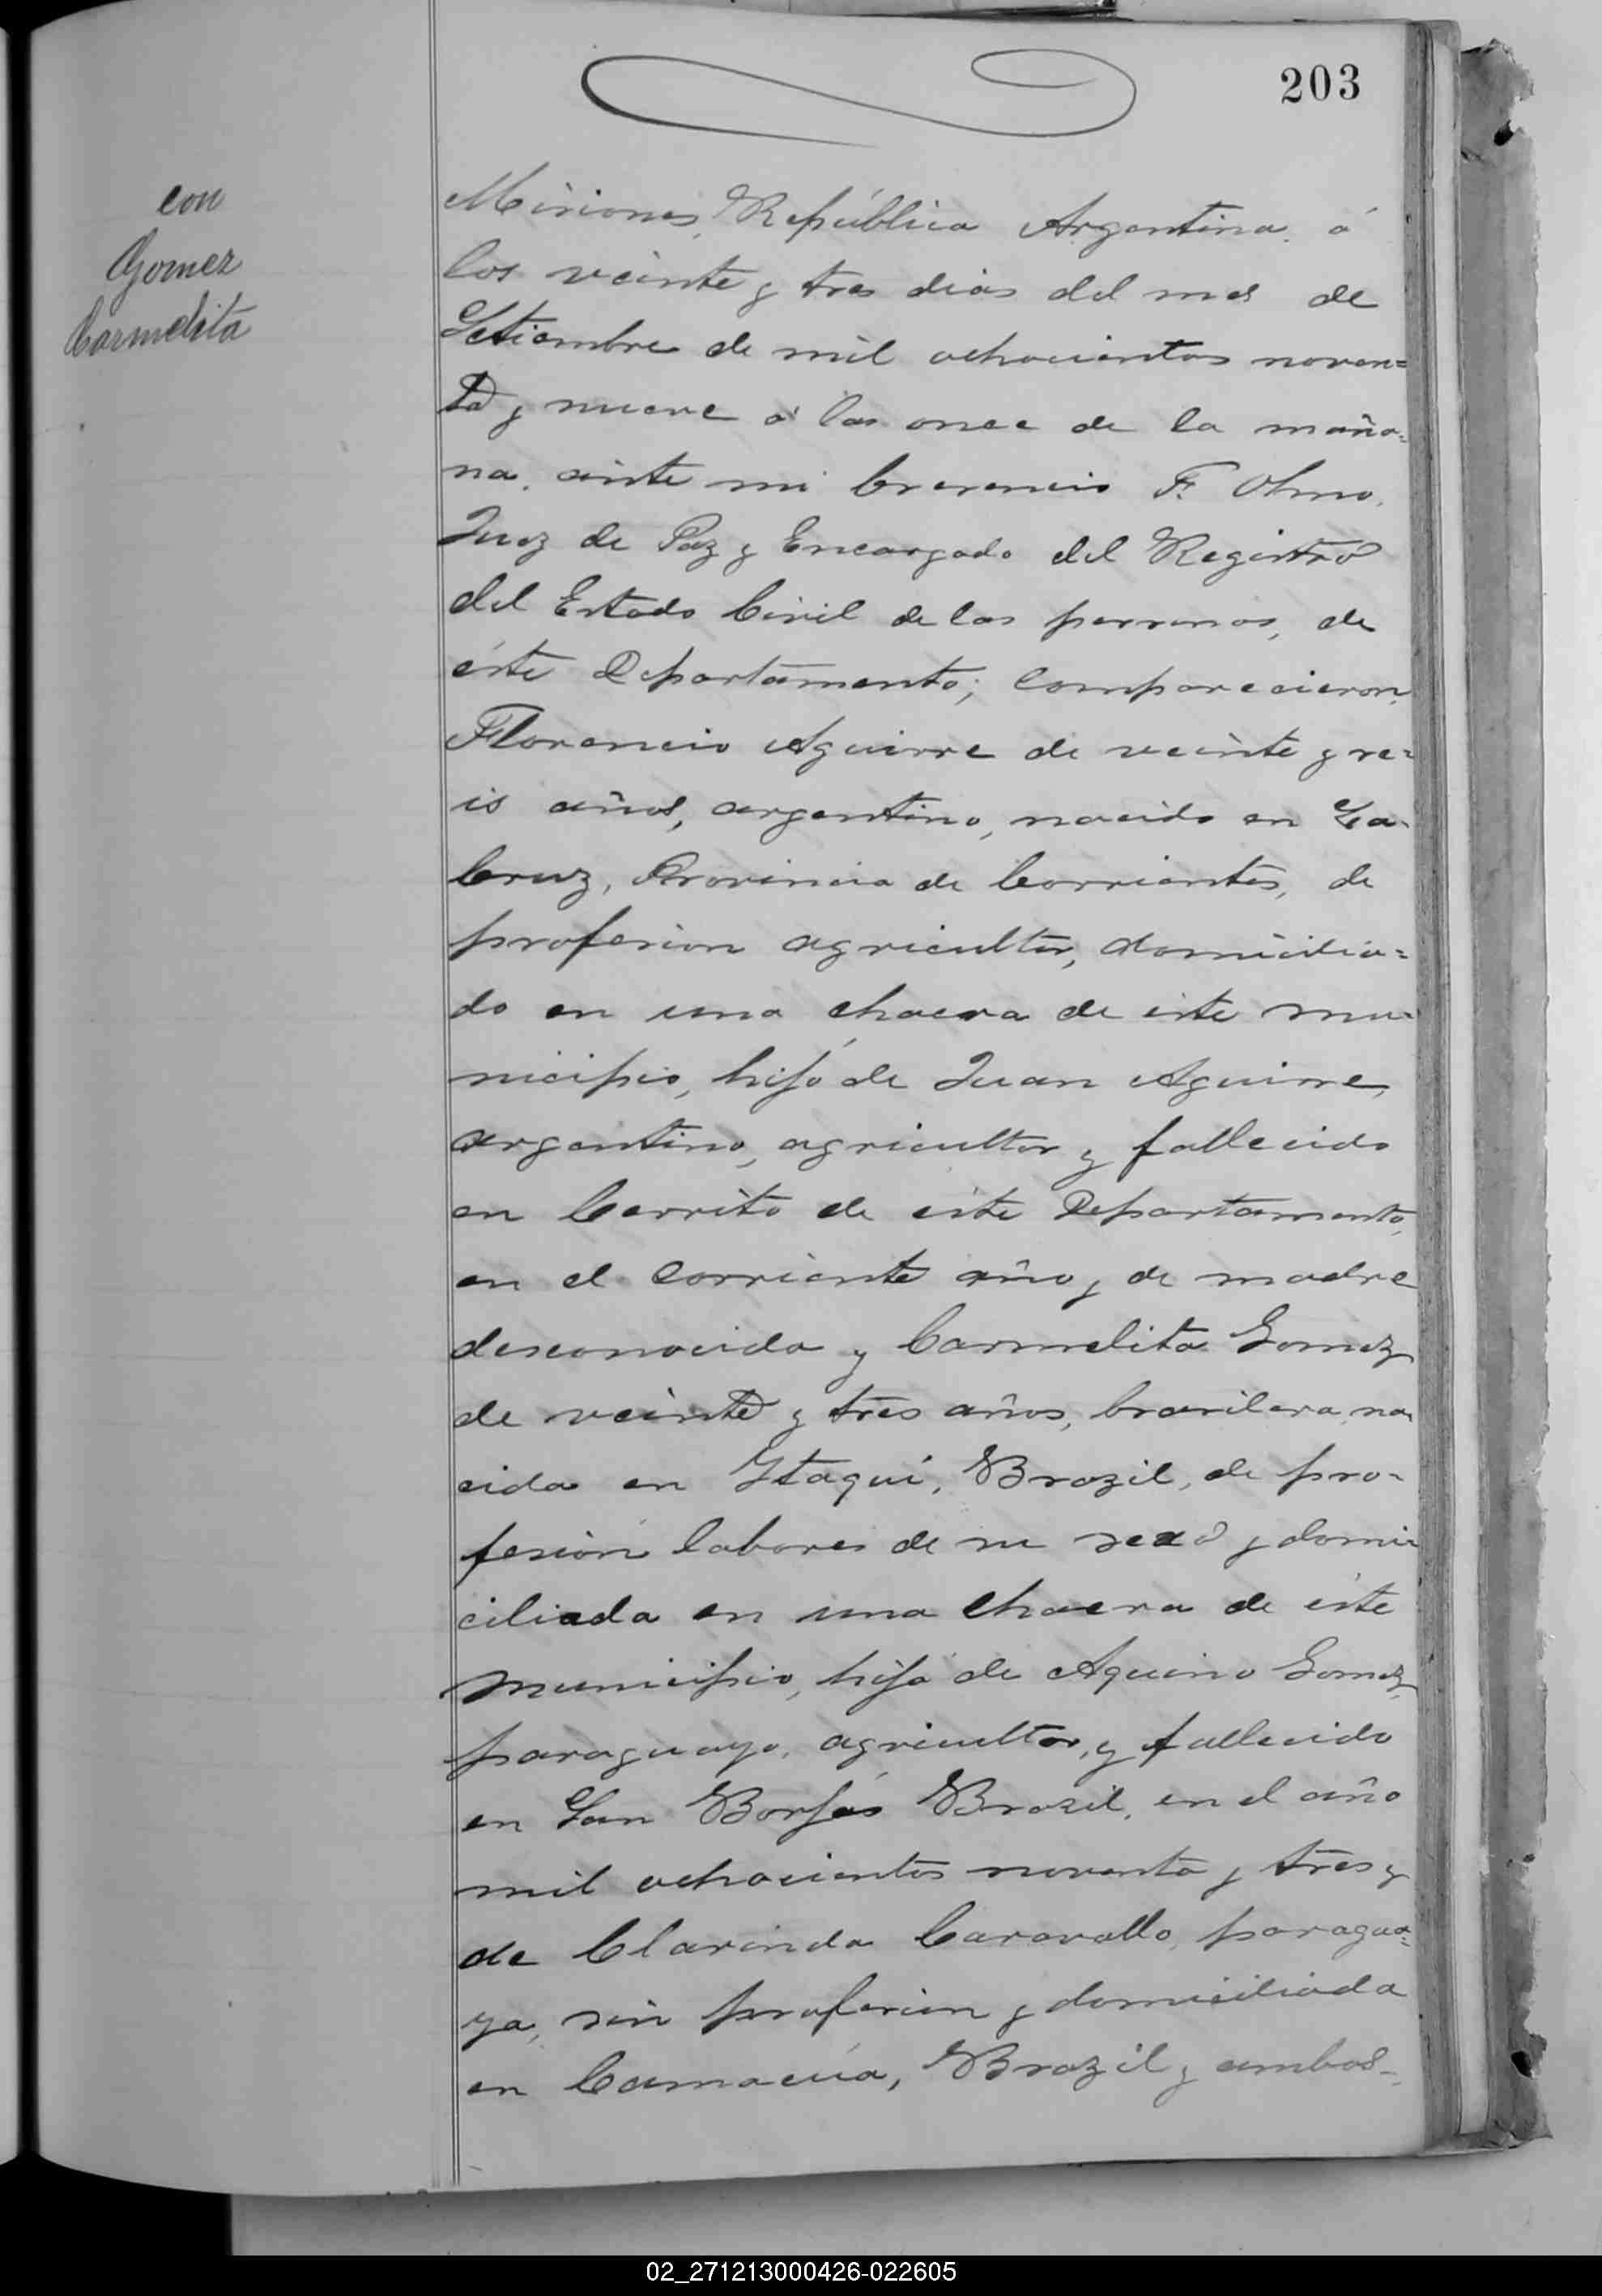 203
con
Gomez
Carmelita
Misiones, República Argentina, á
los veinte y tres dias del mes de
Setiembre de mil ochocientos noven=
ta y nueve á las once de la maña=
na, ante mi Crecencio F. Olmo,
Juez de Paz y Encargado del Registro
del Estado Civil de las personas, de
éste Departamento; comparecieron,
Florencio Aguirre de veinte y se=
is años, argentino, nacido en La
Cruz, Provincia de Corrientes, de
profesion agricultor, domicilia=
do en una chacra de este mu=
nicipio, hijo de Juan Aguirre,
argentino, agricultor y fallecido
en Cerrito de este Departamento,
en el corriente año y de madre
desconocida y Carmelita Gomez
de veinte y tres años, brasilera, na=
cida en Itaquí, Brazil, de pro=
fesion labores de su sexo y domi=
ciliada en una chacra de éste
municipio, hija de Aquino Gomez,
paraguayo, agricultor, y fallecido
en San Borjas Brazil, en el año
mil ochocientos noventa y tres y
de Clarinda Caravallo, paragua=
ya, sin profesion y domiciliada
en Camacuá, Brazil y ambos=
02_271213000426-022605